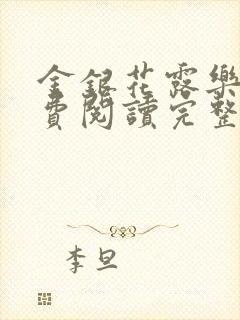 金銀花露樂
費閱讀完整
李旦